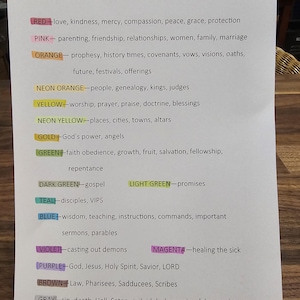 RED—love, kindness, mercy, compassion, peace, grace, protection
PINK— parenting, friendship, relationships, women, family, marriage
ORANGE— prophesy, history times, covenants, vows, visions, oaths,
future, festivals, offerings
NEON ORANGE—people, genealogy, kings, judges
YELLOW—worship, prayer, praise, doctrine, blessings
NEON YELLOW—places, cities, towns, altars
GOLD—God's power, angels
GREEN—faith obedience, growth, fruit, salvation, fellowship,
repentance
DARK GREEN—gospel LIGHT GREEN—promises
TEAL—disciples, VIP
BLUE—wisdom, teaching, instructions, commands, important
sermons, parables
VIOLET—casting out demons MAGENTA—healing the sick
PURPLE—God, Jesus, Holy Spirit, Savior, LORD
BROWN—Law, Pharisees, Sadducees, Scribes
GRAY—